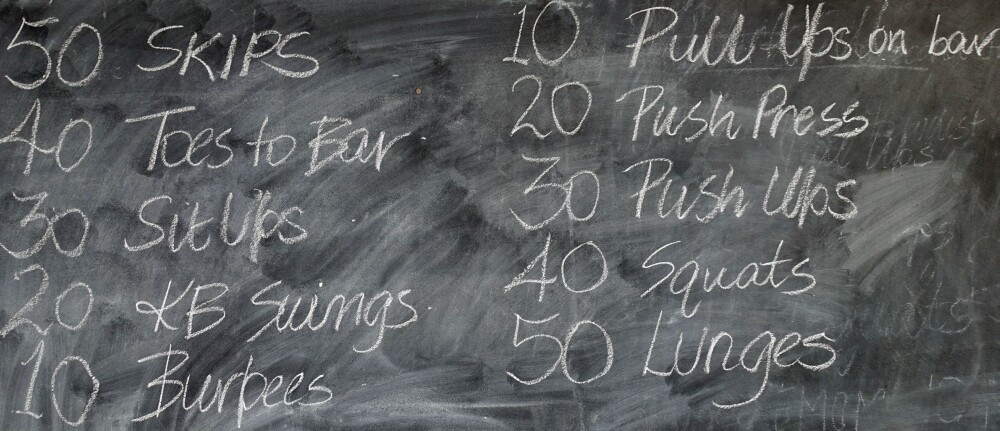 50 SKIPS
40 Toes to Bar
30 Sit Ups
20 KB Swings
10 Burpees
10 Pull Ups on bar
20 Push Press
30 Push Ups
40 Squats
50 Lunges